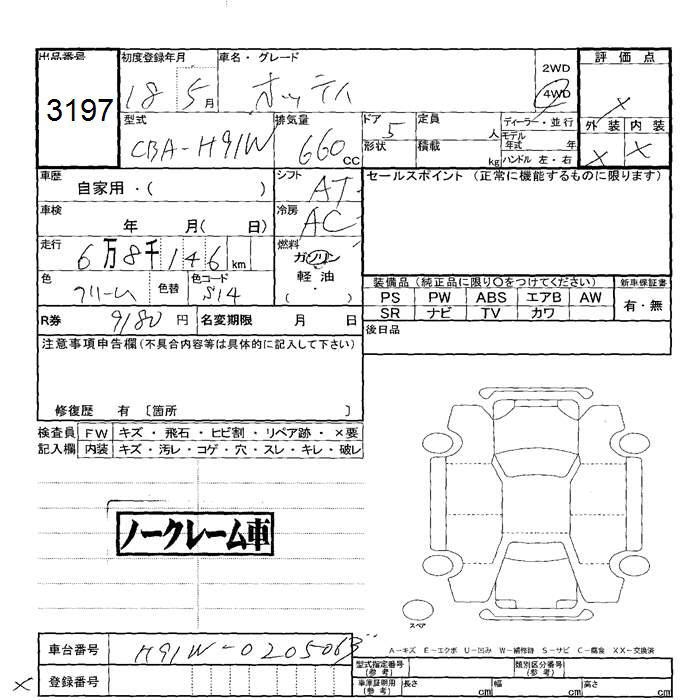 出品番号 初度登録年月 車名・グレード 2WD 評価点
3197 18 5月 オッティ 4WD ×
型式 排気量 ドア 定員 ディーラー・並行 外装 内装
CBA-H91W 660 CC 5 人 モデル年式 年 × ×
形状 積載 kg ハンドル 左・右
車歴 自家用・( ) シフト AT セールスポイント (正常に機能するものに限ります)
車検 年 月( 日) 冷房 AC
走行 6万8千146 km 燃料 ガソリン
色 クリーム 色替 色コード S14 軽油 ( ・ )
装備品 (純正品に限り○をつけてください) 新車保証書
PS PW ABS エアB AW 有・無
SR ナビ TV カワ
R券 9180 円 名変期限 月 日 後日品
注意事項申告欄 (不具合内容等は具体的に記入して下さい)
修復歴 有 〔箇所 〕
検査員 FW キズ・飛石・ヒビ割・リペア跡・×要
記入欄 内装 キズ・汚レ・コゲ・穴・スレ・キレ・破レ
ノークレーム車
スペア
車台番号 H91W-0205063
A-キズ E-エクボ U-凹み W-補修跡 S-サビ C-腐食 XX-交換済
型式指定番号 (参考) 類別区分番号 (参考)
× 登録番号 車庫証明用 (参考) 長さ cm 幅 cm 高さ cm